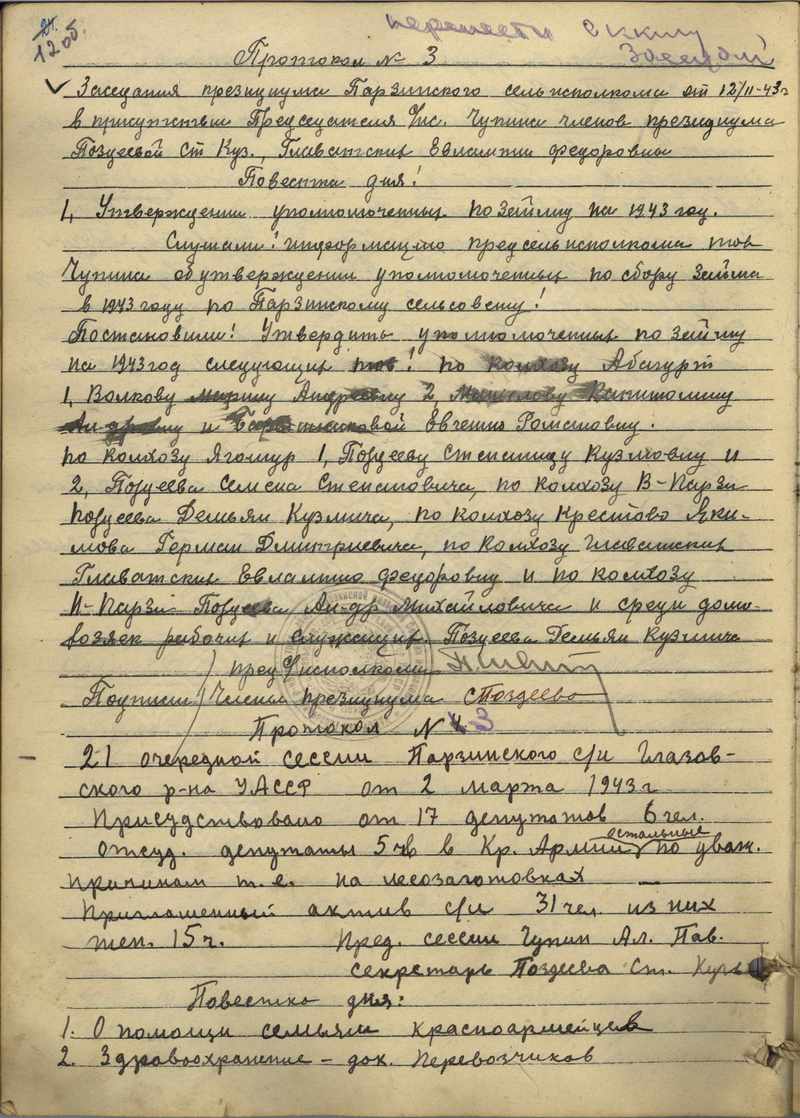 24.
12об.
перенести с книгу
Протокол № 3
Заседания президиума Парзинского сельисполкома от 12/II-43г
в присутствии Председателя Чупина членов президиума
Поздеевой Ст Куз., Главатских Евлампии федоровны
Повестка дня!
1, Утверждении уполномоченных по Займу на 1943 год.
Слушали! информацию предсельисполкома тов
Чупина об утверждении уполномоченных по сбору Займа
в 1943 году по Парзинскому сельсовету!
Постановили! Утвердить уполномоченных по займу
на 1943 год следующих тов! по колхозу
1, Волкову марину Андреевну 2, Капитолину
и Евгению Романовну.
по колхозу Ягошур 1, Поздееву Степаниду Кузмовну и
2, Поздеева Семена Степановича, по колхозу В-Парзи
Поздеева Демьян Кузмича, по колхозу Крестово Яки-
мова Герман Дмитриевича, по колхозу Главатских
Главатских Евлампию федоровну и по колхозу
Н-Парзи Поздеева Ан-др Михайловича и среди домо-
хозяек рабочих и служащих Поздеева Демьян Кузмича
пред исполкома
Подписи Члены президиума СПоздеева
Протокол № 3
21 очередной сессии Парзинского с/с Глазов-
ского р-на УАССР от 2 марта 1943 г
Присудствовало от 17 депутатов 6 чел.
остальные
отсуд. депутаты 5 чв в Кр. Армии по уваж.
причинам т.е. на лесозаготовках —
Приглашенный актив с/с 31 чел. из них
жен. 15 ч. Пред. сессии Чупин Ал. Пав.
секретарь Поздеева Ст. Кузь
Повестка дня:
1. О помощи семьям красноармейцев
2. Здравоохранение – док. Перевозчиков